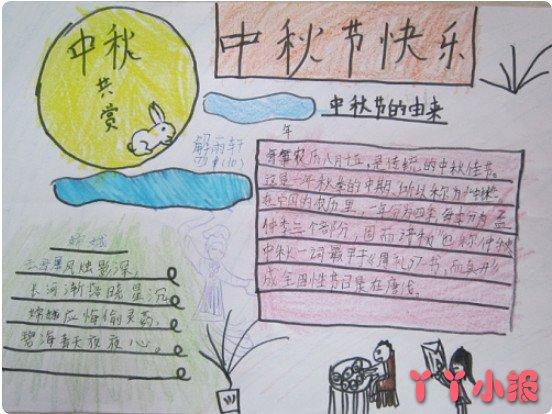 中秋
共赏
中秋节快乐
中秋节的由来
解雨轩
四(10)
年
每事农历八月十五，是传统的中秋佳节。
这是一年秋季的中期，所以称为中秋
在中国的农历里，一年分为四季，每季分为孟
仲季三个部分，因而中秋也称仲秋
中秋一词，最早于《周礼》一书，而真形
成全国性节日是在唐代。
嫦娥
云母屏风烛影深，
长河渐落晓星沉
嫦娥应悔偷灵药，
碧海青天夜夜心。
丫丫小报